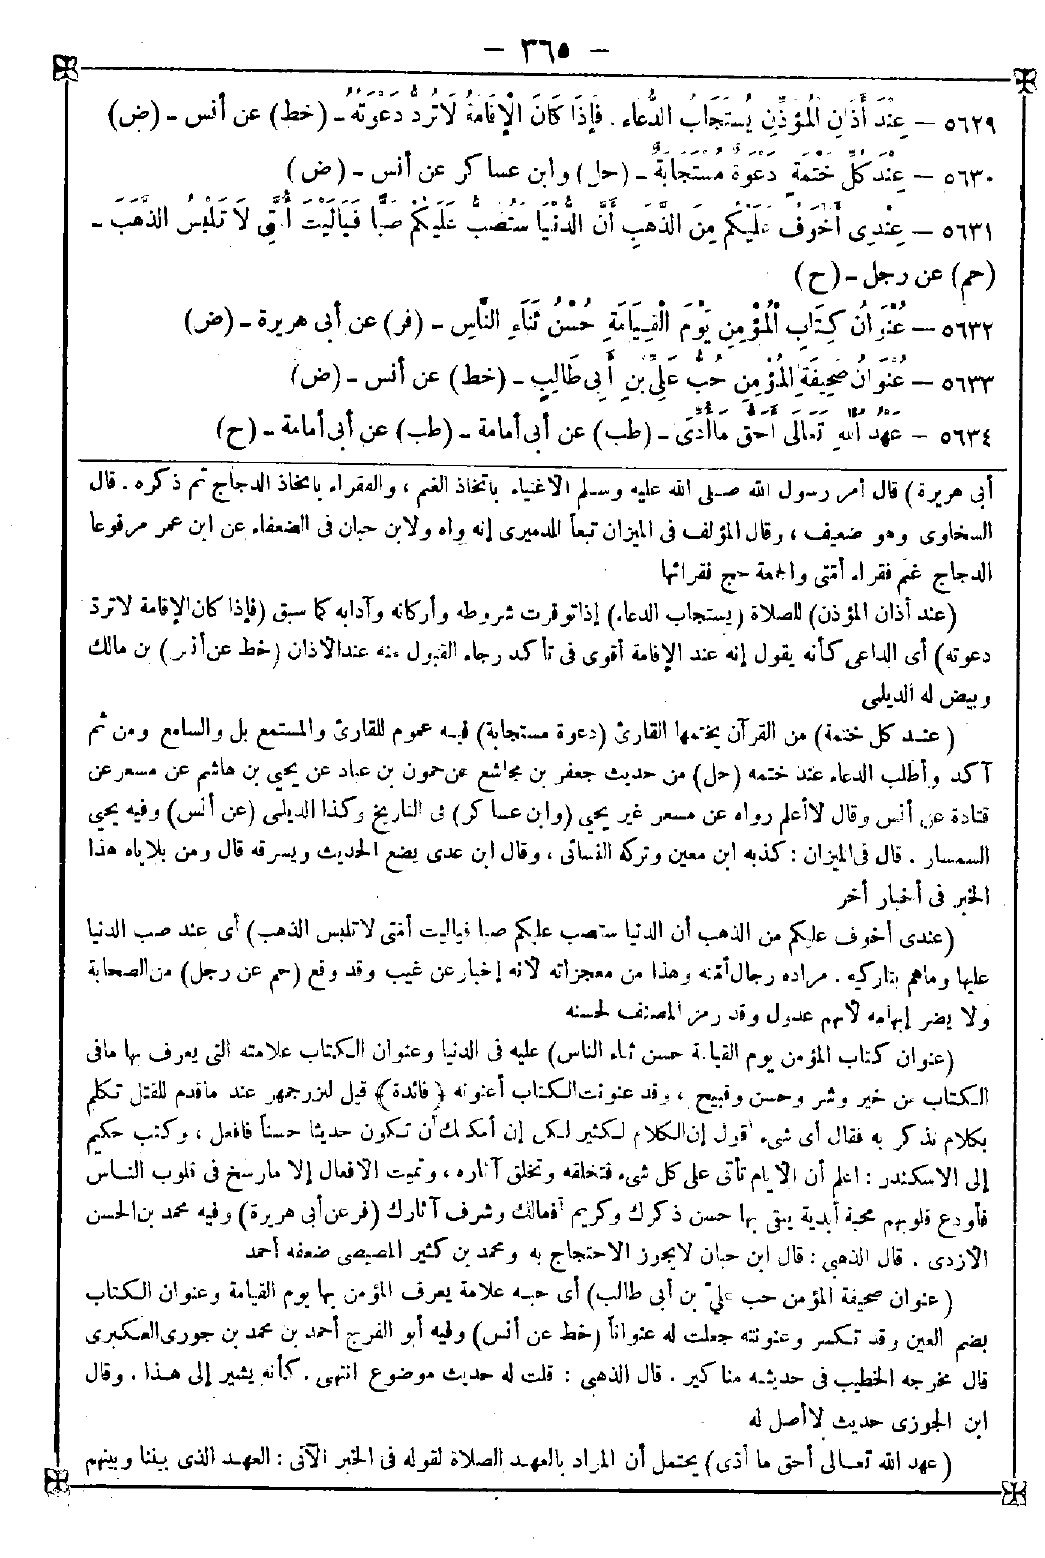 — ٣٦٥ —
٥٦٢٩ — عِنْدَ أَذَانِ الْمُؤَذِّنِ يُسْتَجَابُ الدُّعَاءُ. فَإِذَا كَانَ الْإِقَامَةُ لَا تُرَدُّ دَعْوَتُهُ - (خط) عن أنس - (ض)
٥٦٣٠ — عِنْدَ كُلِّ خَتْمَةٍ دَعْوَةٌ مُسْتَجَابَةٌ - (حل) وابن عساكر عن أنس - (ض)
٥٦٣١ — عِنْدِى أَخْوَفُ عَلَيْكُمْ مِنَ الذَّهَبِ أَنَّ الدُّنْيَا سَتُصَبُّ عَلَيْكُمْ صَبًّا فَيَالَيْتَ أُمَّتِى لَا تَلْبَسُ الذَّهَبَ -
(حم) عن رجل - (ح)
٥٦٣٢ — عُنْوَانُ كِتَابِ الْمُؤْمِنِ يَوْمَ الْقِيَامَةِ حُسْنُ ثَنَاءِ النَّاسِ - (فر) عن أبى هريرة - (ض)
٥٦٣٣ — عُنْوَانُ صَحِيفَةِ الْمُؤْمِنِ حُبُّ عَلِىِّ بْنِ أَبِى طَالِبٍ - (خط) عن أنس - (ض)
٥٦٣٤ — عَهْدُ اللهِ تَعَالَى أَحَقُّ مَا أُدِّىَ - (طب) عن أبى أمامة - (طب) عن أبى أمامة - (ح)
أبى هريرة) قال أمر رسول الله صلى الله عليه وسلم الأغنياء باتخاذ الغنم، والفقراء باتخاذ الدجاج ثم ذكره. قال
السخاوى وهو ضعيف، وقال المؤلف فى الميزان تبعاً للدميرى إنه واه ولابن حبان فى الضعفاء عن ابن عمر مرفوعا
الدجاج غنم فقراء أمتى والجمعة حج فقرائها
(عند أذان المؤذن) للصلاة (يستجاب الدعاء) إذا توفرت شروطه وأركانه وآدابه كما سبق (فإذا كان الإقامة لا ترد
دعوته) أى الداعى كأنه يقول إنه عند الإقامة أقوى فى تأكد رجاء القبول منه عند الأذان (خط عن أنس) بن مالك
وبيض له الديلمى
(عند كل ختمة) من القرآن يختمها القارئ (دعوة مستجابة) فيه عموم للقارئ والمستمع بل والسامع ومن ثم
آكد وأطلب الدعاء عند ختمه (حل) من حديث جعفر بن مجاشع عن حمون بن عباد عن يحيى بن هاشم عن مسعر عن
قتادة عن أنس وقال لا أعلم رواه عن مسعر غير يحيى (وابن عساكر) فى التاريخ وكذا الديلمى (عن أنس) وفيه يحيى
السمسار. قال فى الميزان: كذبه ابن معين وتركه النسائى، وقال ابن عدى يضع الحديث ويسرقه قال ومن بلاياه هذا
الخبر فى أخبار أخر
(عندى أخوف عليكم من الذهب أن الدنيا ستصب عليكم صبا فياليت أمتى لا تلبس الذهب) أى عند صب الدنيا
عليها وماهم بتاركيه. مراده رجال أمته وهذا من معجزاته لأنه إخبار عن غيب وقد وقع (حم عن رجل) من الصحابة
ولا يضر إبهامه لأنهم عدول وقد رمز المصنف لحسنه
(عنوان كتاب المؤمن يوم القيامة حسن ثناء الناس) عليه فى الدنيا وعنوان الكتاب علامته التى يعرف بها مافى
الكتاب من خير وشر وحسن وقبيح، وقد عنونت الكتاب أعنونه ﴿ فائدة ﴾ قيل لبزرجمهر عند ماقدم للقتل تكلم
بكلام نذكر به فقال أى شىء أقول إن الكلام لكثير لكن إن أمكنك أن تكون حديثا حسناً فافعل، وكتب حكيم
إلى الاسكندر: اعلم أن الأيام تأتى على كل شىء فتخلقه وتخلق آثاره، وتميت الأفعال إلا مارسخ فى قلوب الناس
فأودع قلوبهم محبة أبدية يبقى بها حسن ذكرك وكريم أفعالك وشرف آثارك (فر عن أبى هريرة) وفيه محمد بن الحسن
الأزدى. قال الذهبى: قال ابن حبان لا يجوز الاحتجاج به ومحمد بن كثير المصيصى ضعفه أحمد
(عنوان صحيفة المؤمن حب علىّ بن أبى طالب) أى حبه علامة يعرف المؤمن بها يوم القيامة وعنوان الكتاب
بضم العين وقد تكسر وعنونته جعلت له عنواناً (خط عن أنس) وفيه أبو الفرج أحمد بن محمد بن جورى العكبرى
قال مخرجه الخطيب فى حديثه مناكير. قال الذهبى: قلت له حديث موضوع انتهى. كأنه يشير إلى هذا. وقال
ابن الجوزى حديث لا أصل له
(عهد الله تعالى أحق ما أدى) يحتمل أن المراد بالعهد الصلاة لقوله فى الخبر الآتى: العهد الذى بيننا وبينهم